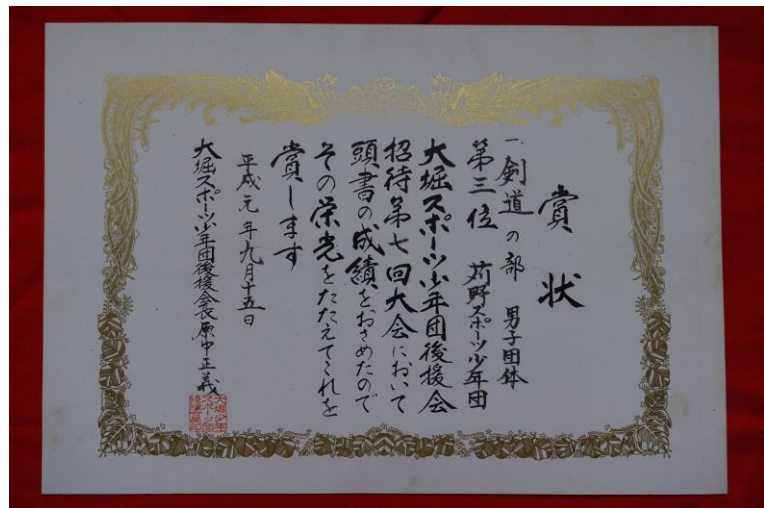 賞状
一、剣道の部 男子団体
第三位 苅野スポーツ少年団
大堀スポーツ少年団後援会
招待第七回大会において
頭書の成績をおさめたので
その栄光をたたえてこれを
賞します
平成元年九月十五日
大堀スポーツ少年団後援会長原中正義